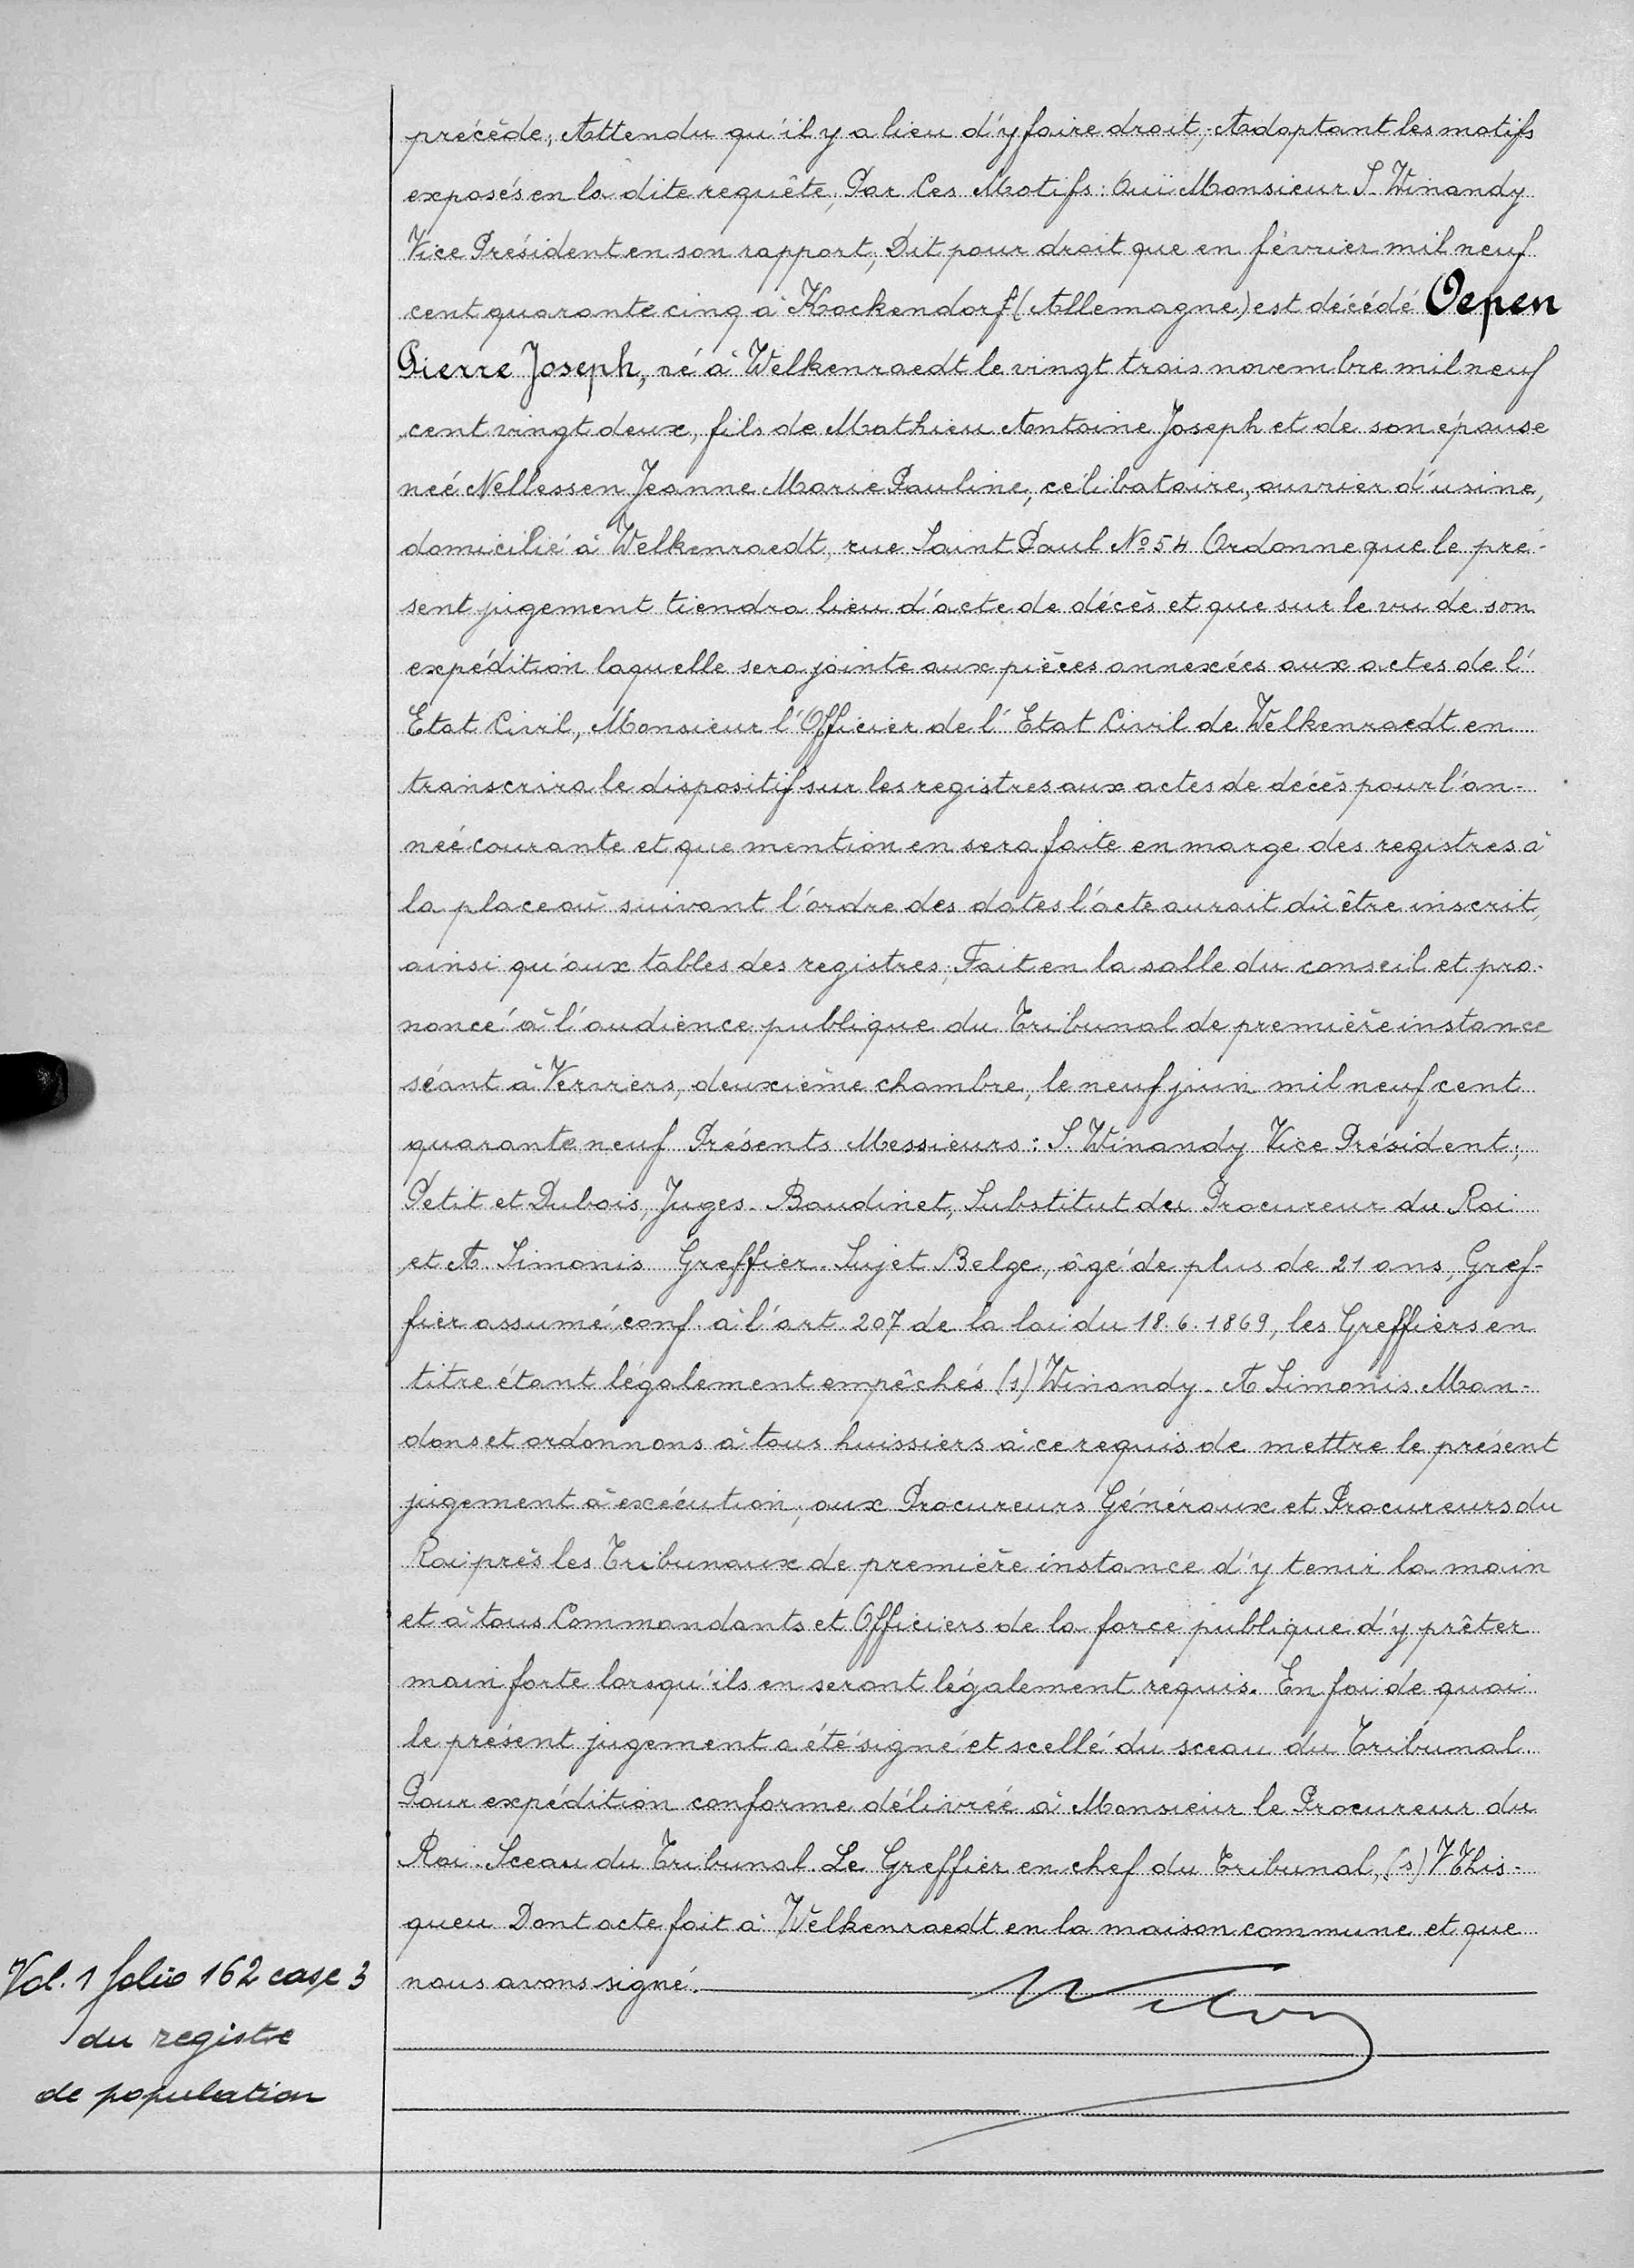 précède; Attendu qu'il y a lieu d'y faire droit; Adoptant les motifs
exposés en la dite requête; Par Ces Motifs: Ouï Monsieur S. Winandy
Vice Président en son rapport; Dit pour droit que en février mil neuf
cent quarante cinq à Kockendorf (Allemagne) est décédé Oepen
Pierre Joseph, né à Welkenraedt le vingt trois novembre mil neuf
cent vingt deux, fils de Mathieu Antoine Joseph et de son épouse
neé Nellessen Jeanne Marie Pauline, célibataire, ouvrier d'usine,
domicilié à Welkenraedt, rue Saint Paul No 54 Ordonne que le pré-
sent jugement tiendra lieu d'acte de décès et que sur le vu de son
expédition laquelle sera jointe aux pièces annexées aux actes de l'
Etat Civil, Monsieur l'Officier de l'Etat Civil de Welkenraedt en
transcrira le dispositif sur les registres aux actes de décès pour l'an-
neé courante et que mention en sera faite en marge des registres à
la place où suivant l'ordre des dates l'acte aurait dû être inscrit,
ainsi qu'aux tables des registres; Fait en la salle du conseil et pro-
noncé à l'audience publique du Tribunal de première instance
séant à Verviers, deuxième chambre, le neuf juin mil neuf cent
quarante neuf Présents Messieurs: S. Winandy Vice Président;
Petit et Dubois, Juges. Baudinet, Substitut du Procureur du Roi
et A. Simonis Greffier. Sujet Belge, âgé de plus de 21 ans, Gref-
fier assumé, conf. à l'art. 207 de la loi du 18.6.1869, les Greffiers en
titre étant légalement empêchés (s) Winandy. A Simonis. Man-
dons et ordonnons à tous huissiers à ce requis de mettre le présent
jugement à exécution; aux Procureurs Généraux et Procureurs du
Roi près les Tribunaux de première instance d'y tenir la main
et à tous Commandants et Officiers de la force publique d'y prêter
main forte lorsqu'ils en seront légalement requis. En foi de quoi
le présent jugement a été signé et scellé du sceau du Tribunal.
Pour expédition conforme délivrée à Monsieur le Procureur du
Roi. Sceau du Tribunal. Le Greffier en chef du Tribunal, (s) V This-
queu Dont acte fait à Welkenraedt en la maison commune et que
nous avons signé.
Vol. 1 folio 162 case 3
du registre
de population